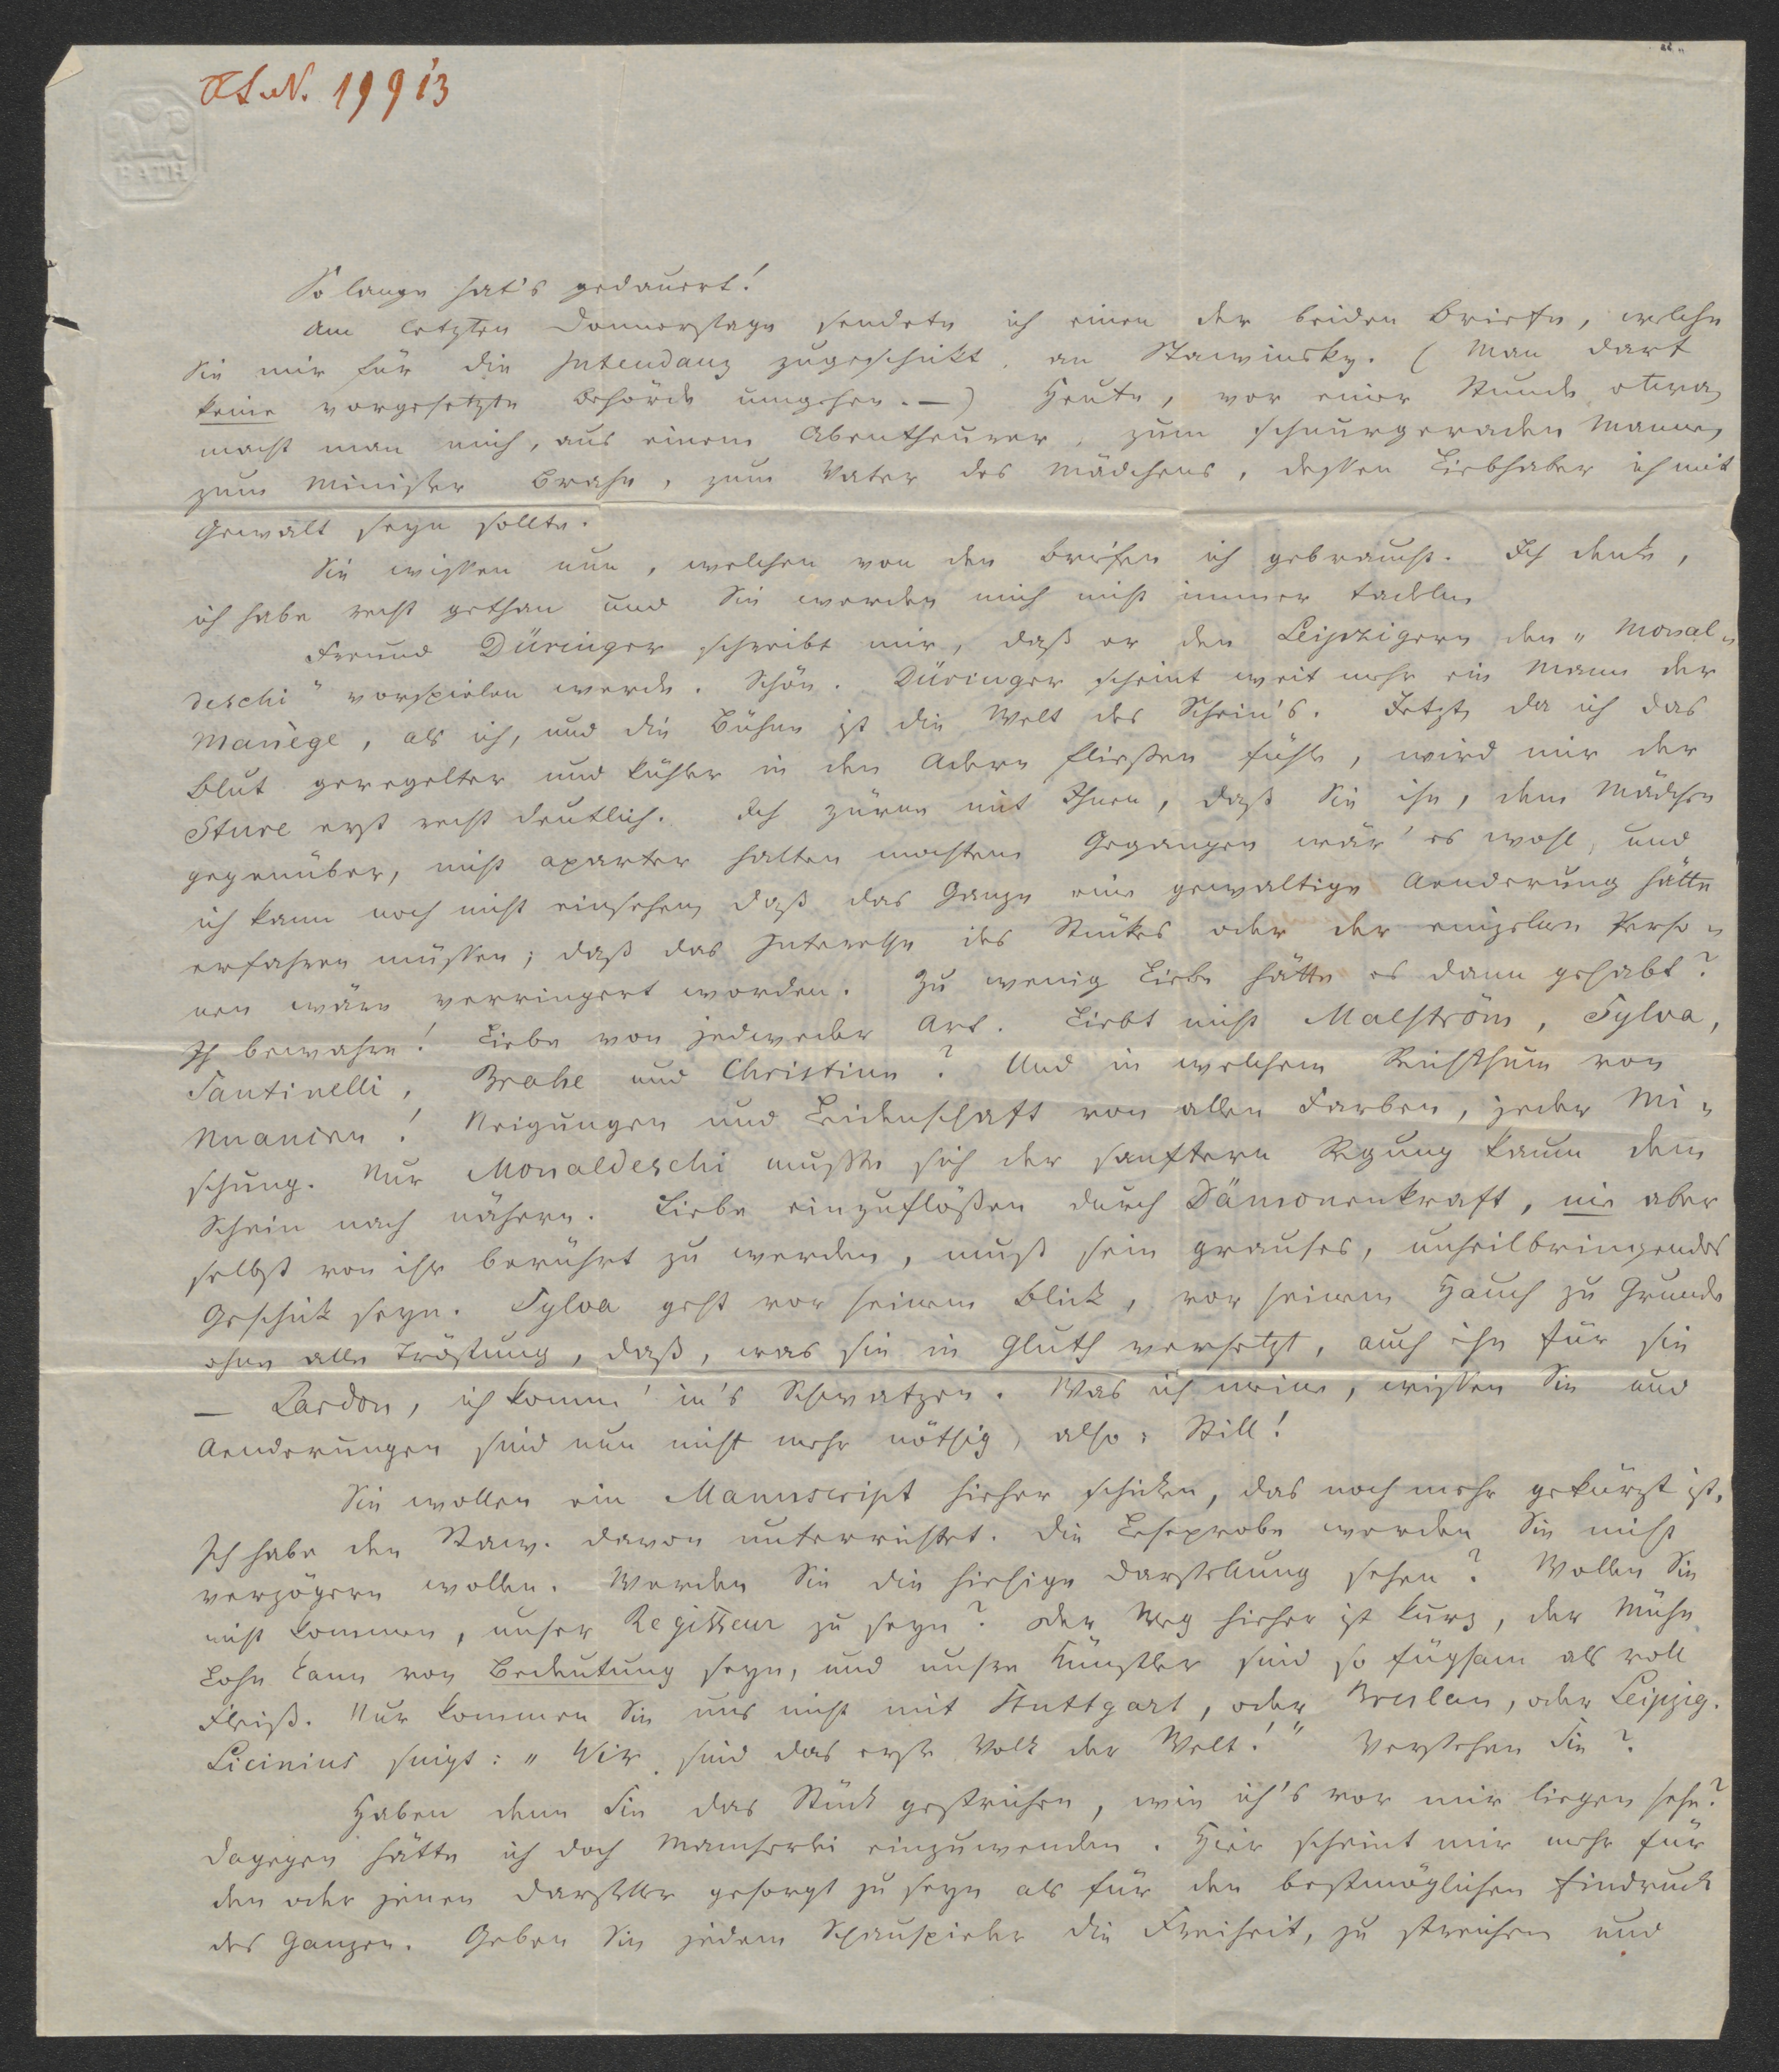 H.I.N. 19913
BATH
So lange hat's gedauert!
Am letzten Donnerstage sendete ich einen der beiden Briefe, welche
Sie mir für die Intendanz zugeschickt, an Stawinsky. (Man darf
keine vorgesetzte Behörde umgehen. —) Heute, vor einer Stunde etwa,
macht man mich, aus einem Abentheurer, zum schnurgeraden Manne,
zum Minister Brahe, zum Vater des Mädchens, dessen Liebhaber ich mit
Gewalt seyn sollte.
Sie wissen nun, welchen von den Briefen ich gebraucht. Ich denke,
ich habe recht gethan und Sie werden mich nicht immer tadeln
Freund Düringer schreibt mir, daß er den Leipzigern den „Monal„
deschi" vorspielen werde. Schön. Düringer scheint weit mehr ein Mann der
Manège, als ich, und die Bühne ist die Welt des Schein's. Jetzt, da ich das
Blut geregelter und kühler in den Adern fließen fühle, wird mir der
Sture erst recht deutlich. Ich zürne mit Ihnen, daß Sie ihn, dem Mädchen
gegenüber, nicht aparter halten mochten. Gegangen wär' es wohl, und
ich kann noch nicht einsehen, daß das Ganze eine gewaltige Aenderung hätte
erfahren müssen; daß das Interesse des Stückes oder der einzelnen Perso„
nen wäre verringert worden. Zu wenig Liebe hätte es dann gehabt?
Ih bewahre! Liebe von jedweder Art. Liebt nicht Malström, Sylva,
Santinelli, Brahe und Christine? Und in welchem Reichthum von
Nuancen! Neigungen und Leidenschaft von allen Farben, jeder Mi„
schung. Nur Monaldeschi mußte sich der sanftern Regung kaum dem
Schein nach nähern. Liebe einzuflößen durch Dämonenkraft, nie aber
selbst von ihr berührt zu werden, muß sein grauses, unheilbringendes
Geschick seyn. Sylva geht vor seinem Blick, vor seinem Hauch zu Grunde
ohne alle Tröstung, daß, was sie in Gluth versetzt, auch ihn für sie
— Pardon, ich komme' in's Schwatzen. Was ich meine, wissen Sie und
Aenderungen sind nun nicht mehr nöthig, also: Still!
Sie wollen ein Manuscript hieher schicken, das noch mehr gekürzt ist,
Ich habe den Staw. davon unterrichtet. Die Leseprobe werden Sie nicht
verzögern wollen. Werden Sie die hiesige Darstellung sehen? Wollen Sie
nicht kommen, unser Regisseur zu seyn? Der Weg hieher ist kurz, der Mühe
Lohn kann von Bedeutung seyn, und unsre Künstler sind so fügsam als voll
Fleiß. Nur kommen Sie uns nicht mit Stuttgart, oder Breslau, oder Leipzig.
Licinius singt: „Wir sind das erste Volk der Welt!" Verstehen Sie?
Haben denn Sie das Stück gestrichen, wie ich's vor mir liegen sehe?
Dagegen hätte ich doch Mancherlei einzuwenden. Hier scheint mir mehr für
den oder jenen Darsteller gesorgt zu seyn als für den bestmöglichen Eindruck
des Ganzen. Geben Sie jedem Schauspieler die Freiheit, zu streichen und